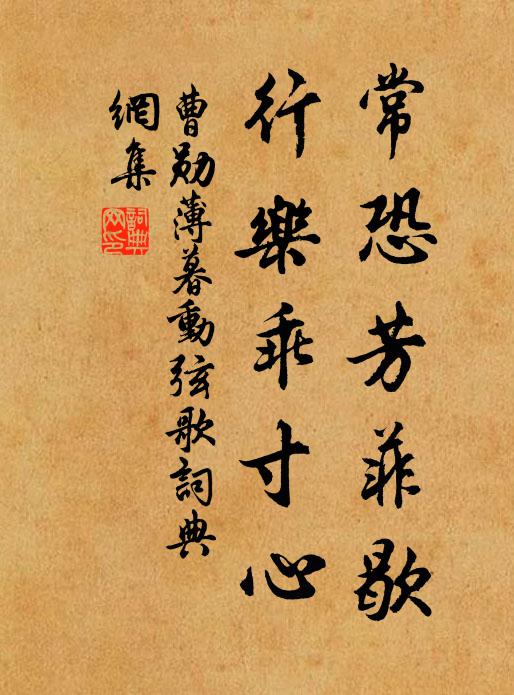 常恐芳菲歇
行樂乖寸心
曹勛薄暮動弦歌詞典
網集
詞典
网印